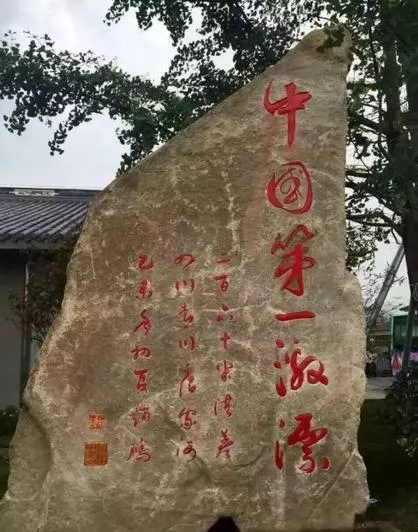 中国第一激漂
二百六十米落差
四川青川唐家河
乙未年初夏